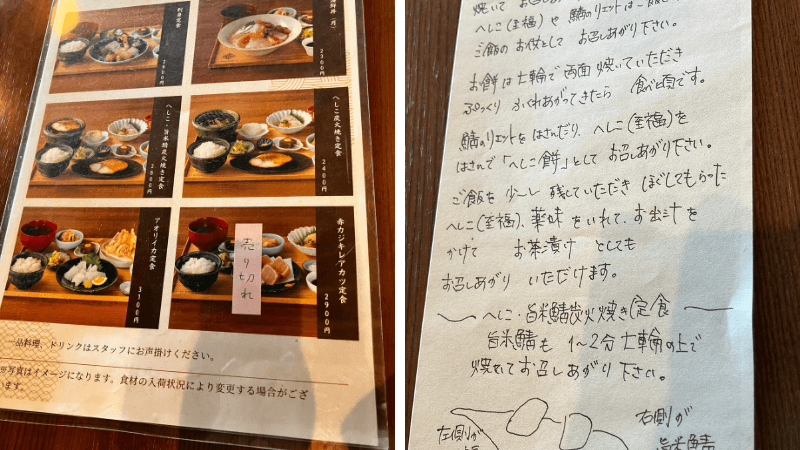 刺身定食
海鮮丼(月)
2300円
へしこ・旨米鯖炭火焼き定食
2800円
へしこ炭火焼き定食
2400円
アオリイカ定食
3300円
赤カジキレアカツ定食
2900円
売り切れ
一品料理、ドリンクはスタッフにお声掛けください。
※写真はイメージになります。食材の入荷状況により変更する場合がござ
います。
焼いて お召し
へしこ(至福)や 鯖のリエットは
ご飯の お供として お召しあがり下さい。
お餅は七輪で両面焼いていただき
ぷっくり ふくれあがってきたら 食べ頃です。
鯖のリエットをはさんだり、へしこ(至福)を
はさんで「へしこ餅」として お召しあがり下さい。
ご飯を少〜し残していただき ほぐしてもらった
へしこ(至福)、薬味をいれて、お出汁を
かけて お茶漬けとしても
お召しあがり いただけます。
へしこ・旨米鯖炭火焼き定食
旨米鯖も 1〜2分 七輪の上で
焼いてお召しあがり下さい。
左側が
右側が
旨米鯖